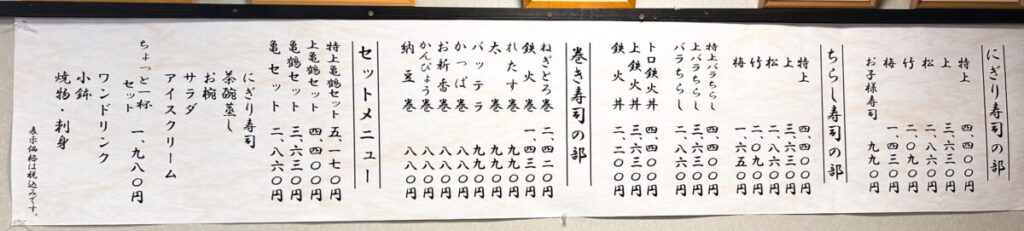 にぎり寿司の部
特上 四、四〇〇円
上 三、六三〇円
松 二、八六〇円
竹 二、〇九〇円
梅 一、四三〇円
お子様寿司 九九〇円
ちらし寿司の部
特上 四、四〇〇円
上 三、六三〇円
松 二、八六〇円
竹 二、〇九〇円
梅 一、六五〇円
特上バラちらし 四、四〇〇円
上バラちらし 三、六三〇円
バラちらし 二、八六〇円
トロ鉄火丼 四、四〇〇円
上鉄火丼 三、六三〇円
鉄火丼 二、二〇〇円
巻き寿司の部
ねぎとろ巻 二、四二〇円
鉄火巻 一、四三〇円
れたす巻 九九〇円
太巻 九九〇円
バッテラ 九九〇円
かっぱ巻 八八〇円
お新香巻 八八〇円
かんぴょう巻 八八〇円
納豆巻 八八〇円
セットメニュー
特上亀鶴セット 五、一七〇円
上亀鶴セット 四、四〇〇円
亀鶴セット 三、六三〇円
亀セット 二、八六〇円
にぎり寿司
茶碗蒸し
お椀
サラダ
アイスクリーム
ちょっと一杯
セット 一、九八〇円
ワンドリンク
小鉢
焼物・刺身
表示価格は税込みです。